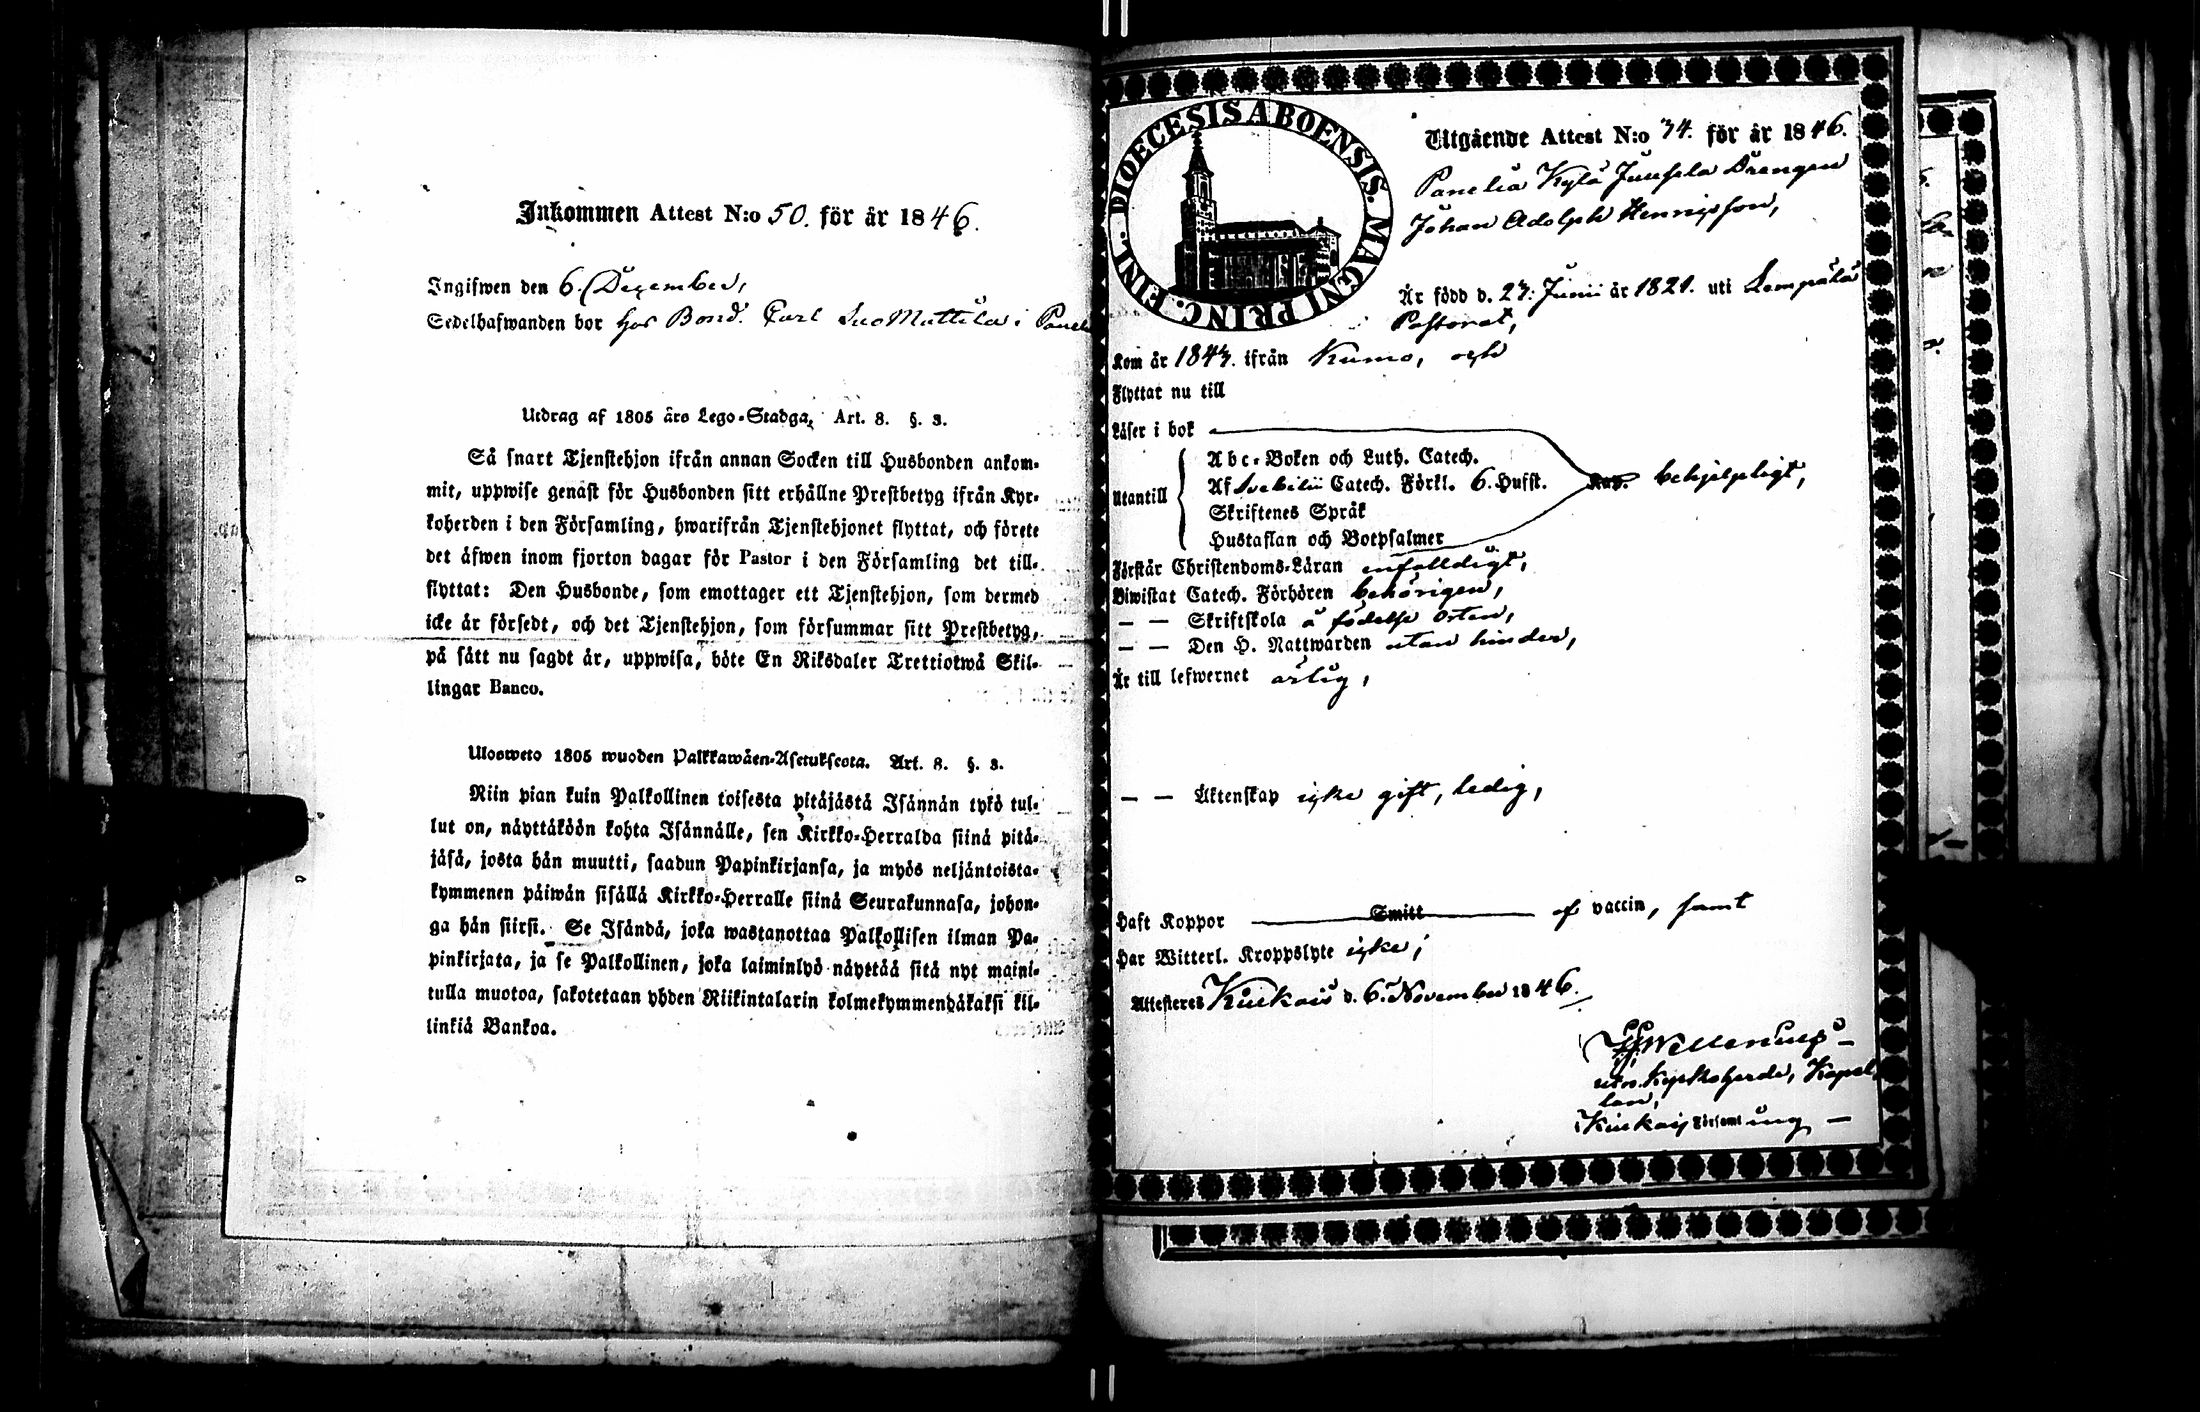 Inkommen Attest N:o 50. för år 1846.
Ingifwen den 6. December,
Sedelhafwanden bor hos Bond. Carl Suo Mattila i Panel
Utdrag af 1805 års Lego-Stadga, Art. 8. §. 3.
Så snart Tjenstehjon ifrån annan Socken till Husbonden ankom-
mit, uppwise genast för Husbonden sitt erhållne Prestbetyg ifrån Kyr-
koherden i den Församling, hwarifrån Tjenstehjonet flyttat, och förete
det äfwen inom fjorton dagar för Pastor i den Församling det till-
flyttat: Den Husbonde, som emottager ett Tjenstehjon, som dermed
icke är försedt, och det Tjenstehjon, som försummar sitt Prestbetyg,
på sätt nu sagdt är, uppwisa, böte En Riksdaler Trettiotwå Skil-
lingar Banco.
Ulosweto 1805 wuoden Palkkawäen-Asetuksesta. Art. 8. §. 3.
Niin pian kuin Palkollinen toisesta pitäjästä Isännän tykö tul-
lut on, näyttäköön kohta Isännälle, sen Kirkko-Herralda siinä pitä-
jäsä, josta hän muutti, saadun Papinkirjansa, ja myös neljäntoista-
kymmenen päiwän sisällä Kirkko-Herralle siinä Seurakunnasa, johon-
ga hän siirsi. Se Isändä, joka wastanottaa Palkollisen ilman Pa-
pinkirjata, ja se Palkollinen, joka laiminlyö näyttää sitä nyt maini-
tulla muotoa, sakotetaan yhden Riikintalarin kolmekymmendäkaksi kil-
linkiä Bankoa.
DIOECESIS ABOENSIS. MAGNI PRINC. FINL.
Utgående Attest N:o 34. för år 1846.
Panelia Kylä Juusela Drengen
Johan Adolph Henricsson,
Är född d. 23. Junii år 1821. uti Lempälä
Pastorat,
Kom år 1843. ifrån Kumo, och
Flyttar nu till
Läser i bok
Utantill
Abc-Boken och Luth. Catech.
Af Svebilii Catech. Förkl. 6. Hufst.
Skriftenes Språk
Hustaflan och Botpsalmer
behjelpligt,
Förstår Christendoms-Läran enfalldigt,
Biwistat Catech. Förhören behörigen,
— — Skriftskola å födelse Orten,
— — Den H. Nattwarden utan hinder,
Är till lefwernet ärlig,
— — Äktenskap icke gift, ledig,
Haft Koppor Smitt af vaccin, samt
Har Witterl. Kroppslyte icke;
Attesteres Kiukais d. 6. November 1846.
utn. Kyrkoherde, Kapel-
lan,
i Kiukais Församling —